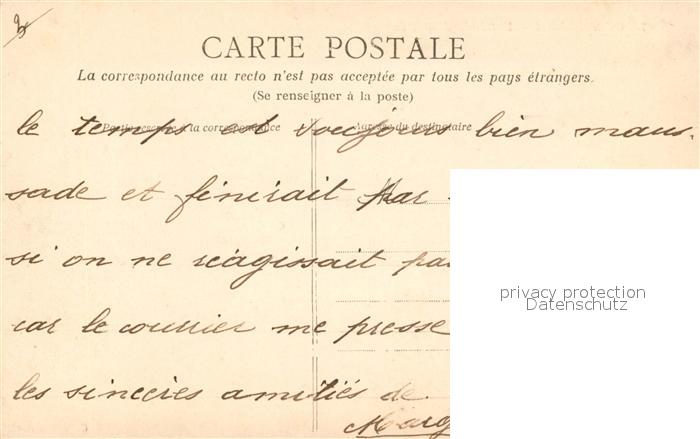 CARTE POSTALE
La correspondance au recto n'est pas acceptée par tous les pays étrangers.
(Se renseigner à la poste)
Partie réservée à la correspondance
Adresse du destinataire
le temps est toujours bien maus-
sade et finirait par
si on ne réagissait pas
car le courrier me presse
les sincères amitiés de
Marg
privacy protection
Datenschutz